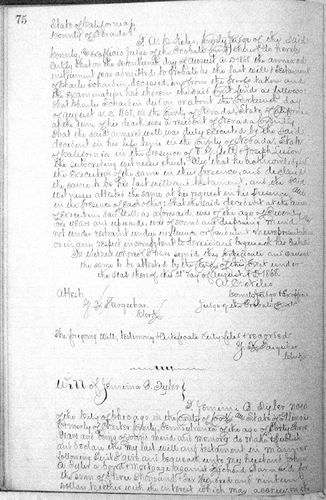 75
State of California
County of Nevada
I A. C. Niles, County Judge of the said
County, Ex officio Judge of the Probate Court thereof do hereby
certify that on the day of August A D 1868 the annexed
instrument was admitted to Probate as the last will & testament
of Charles deceased, and from the proofs taken and
the examination had therein the said Court finds as follows:
That Charles died on or about the day
of August A D 1868, in the County of Nevada, State of California
at the time of his death was a resident of Nevada County,
That the said annexed will was duly executed by the said
decedent in his life time in the County of Nevada, State
of California in the presence of
the subscribing witnesses thereto. Also that he acknowledged
the Execution of the same in their presence, and declared
the same to be his last will and testament, and the said
witnesses attested the same at his request in his presence, and
in the presence of each other; that the said decedent at the time
of Executing said will as aforesaid, was of the age of
years and upwards, was of sound and disposing mind &
not under restraint undue influence or fraudulent representations
or in any respect incompetent to devise and bequeath his Estate
In witness whereof I have signed this certificate and caused
the same to be attested by the Clerk of this Court under
the seal thereof this day of August A D 1868.
A. C. Niles
Attest
County Judge & Ex officio
Farquhar
Judge of the Probate Court
Clerk
The foregoing Will, testimony & certificate duly filed & recorded
Farquhar
Clerk
Will of Jemima B. Tyler
I Jemima B. Tyler now
of the City of Chicago in the County of Cook and State of Illinois
formerly of County, Pennsylvania of the age of forty three
years and being of sound mind and memory do make publish
and declare this my last will and testament in manner
following First I give and bequeath unto my husband
A. Tyler a bond & mortgage against for
the sum of three thousand six hundred and ninety
dollars together with the interest which may accrue on the